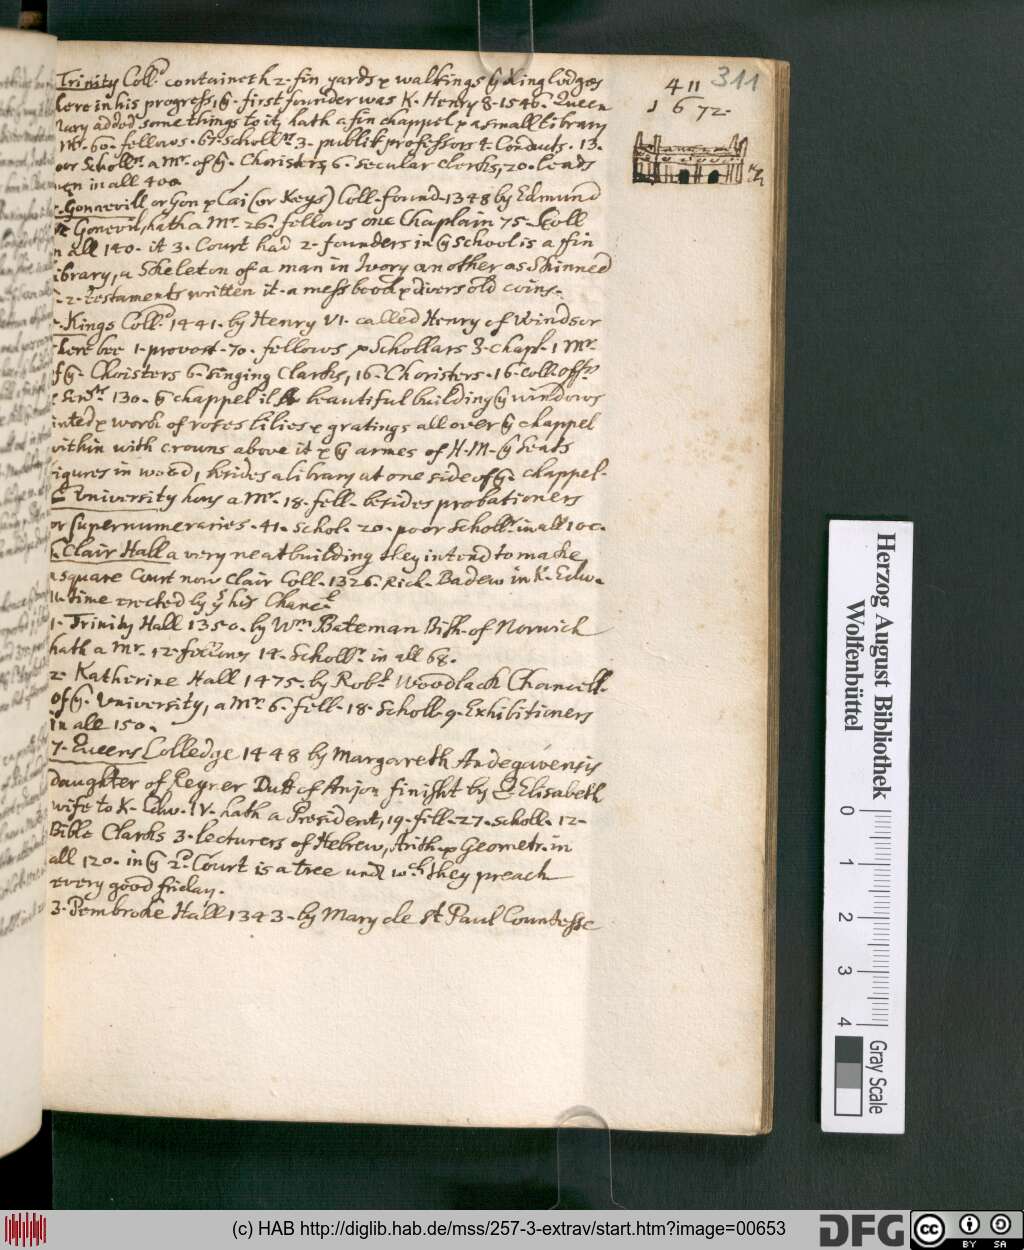 311
4 11
1672.
Trinity Coll. containeth 2. fin yards & walkings ye King lodges
here in his progress, ye. first founder was K. Henry 8. 1546. Queen
Mary added some things to it, hath a fin chappel & a small library
Mr. 60. fellows. 67. Schollrs 3. publik professors 4. Conducts. 13.
oor Schollrs a Mr. of ye. Choristers, 6. secular clerks, 20. beads
men in all 400
Gonnevill or Gon & Cai (or Keys) Coll. found. 1348 by Edmund
Gonevil, hath a Mr. 26. fellows one Chaplain 75. Scoll
n all 140. it 3. Court had 2. founders in ye School is a fin
ibrary, a Skeleton of a man in Ivory another as Skinned
2. testaments written it. a mess book & divers old coins.
Kings Coll. 1441. by Henry VI. called Henry of Windsor
here bee 1. provost. 70. fellows & Schollars 3. chapl. 1 Mr.
of ye. Choisters 6. singing Clarks, 16. Choristers. 16. coll offrs
130. ye chappel is beautiful building ye windows
inted & work of roses lilies & gratings all over ye chappel
within with crowns above it & ye armes of H. M. ye Seats
igures in wood, besides a library at one side of ye. chappel.
University hous a Mr. 18. fell. besides probationers
or supernumeraries. 41. schol. 20. poor Schollr. in all 100.
Clair Hall a very neat building they intend to make
a square Court now Clair Coll. 1326. Rich. Badew in K. Edw.
time erected by ye his Chanc.
1. Trinity Hall 1350. by Wm Bateman Bish. of Norwich
hath a Mr. 12. fellows 14. Schollr. in all 68.
2. Katherine Hall 1475. by Robt Woodlack Chancell.
of ye. University, a Mr. 6. fell. 18. Scholl. 9. Exhibitioners
in all 150.
7. Queens Colledge 1448 by Margareth Andegavensis
daughter of Reyner Duk of Anjou finisht by Q. Elisabeth
wife to K. Edw. IV. hath a President, 19. fell. 27. scholl. 12.
Bible Clarks 3. lecturers of Hebrew, Arith. & Geometr. in
all 120. in ye 2d. Court is a tree und wch they preach
every good friday.
3. Pembroke Hall 1343. by Mary de St Paul Countesse
Herzog August Bibliothek
Wolfenbüttel
0 1 2 3 4
Gray Scale
(c) HAB http://diglib.hab.de/mss/257-3-extrav/start.htm?image=00653
DFG
cc BY SA